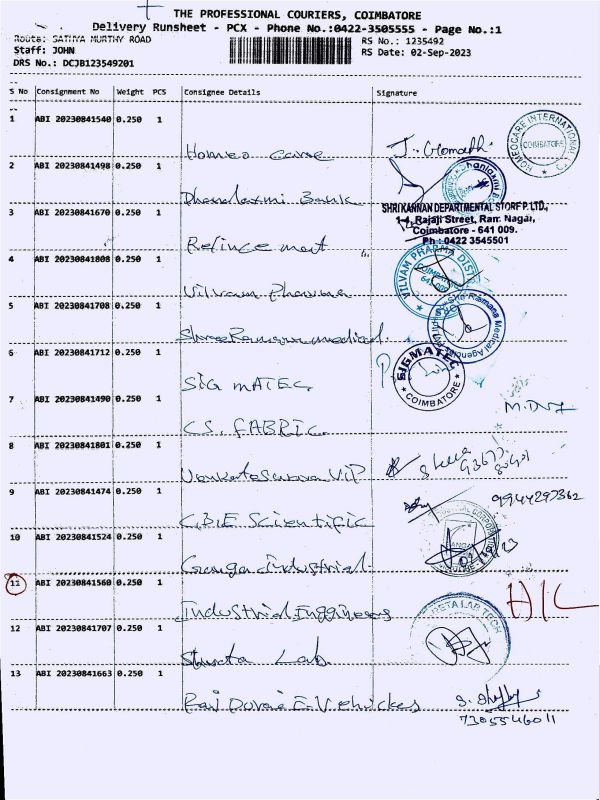 THE PROFESSIONAL COURIERS, COIMBATORE
Delivery Runsheet - PCX - Phone No.:0422-3505555 - Page No.:1
Route: SATHYA MURTHY ROAD
RS No.: 1235492
Staff: JOHN
RS Date: 02-Sep-2023
DRS No.: DCJB123549201
S No Consignment No Weight PCS Consignee Details Signature
1 ABI 20230841540 0.250 1
Homeo care J. Gomathi
HOMEOCARE INTERNATIONAL COIMBATORE
2 ABI 20230841498 0.250 1
Dhanalaxmi Bank
3 ABI 20230841670 0.250 1
SHRI KANNAN DEPARTMENTAL STORE P. LTD.,
1-4, Rajaji Street, Ram Nagar,
Coimbatore - 641 009.
Ph : 0422 3545501
Relince mart "
4 ABI 20230841808 0.250 1
Vilvam Pharma
VILVAM PHARMA DIST
5 ABI 20230841708 0.250 1
Shree Ramana medical.
Shri Ramana Medical Agencies
6 ABI 20230841712 0.250 1
SIG MATEC
SIGMATEC COIMBATORE
7 ABI 20230841490 0.250 1
C.S. FABRIC
8 ABI 20230841801 0.250 1
VIP
9 ABI 20230841474 0.250 1
9944297362
CBE Scientific
10 ABI 20230841524 0.250 1
Ganga industrial
11 ABI 20230841560 0.250 1
Industrial Enggineers
H/L
12 ABI 20230841707 0.250 1
Lab.
LAB TECH
13 ABI 20230841663 0.250 1
Raj Durai E.V ehickes
7305546011